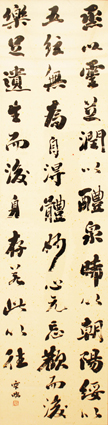 蒸以靈芝潤以醴泉晞以朝陽綏以
五絃無為自得體妙心玄忘歡而後
樂足遺生而後身存若此以往